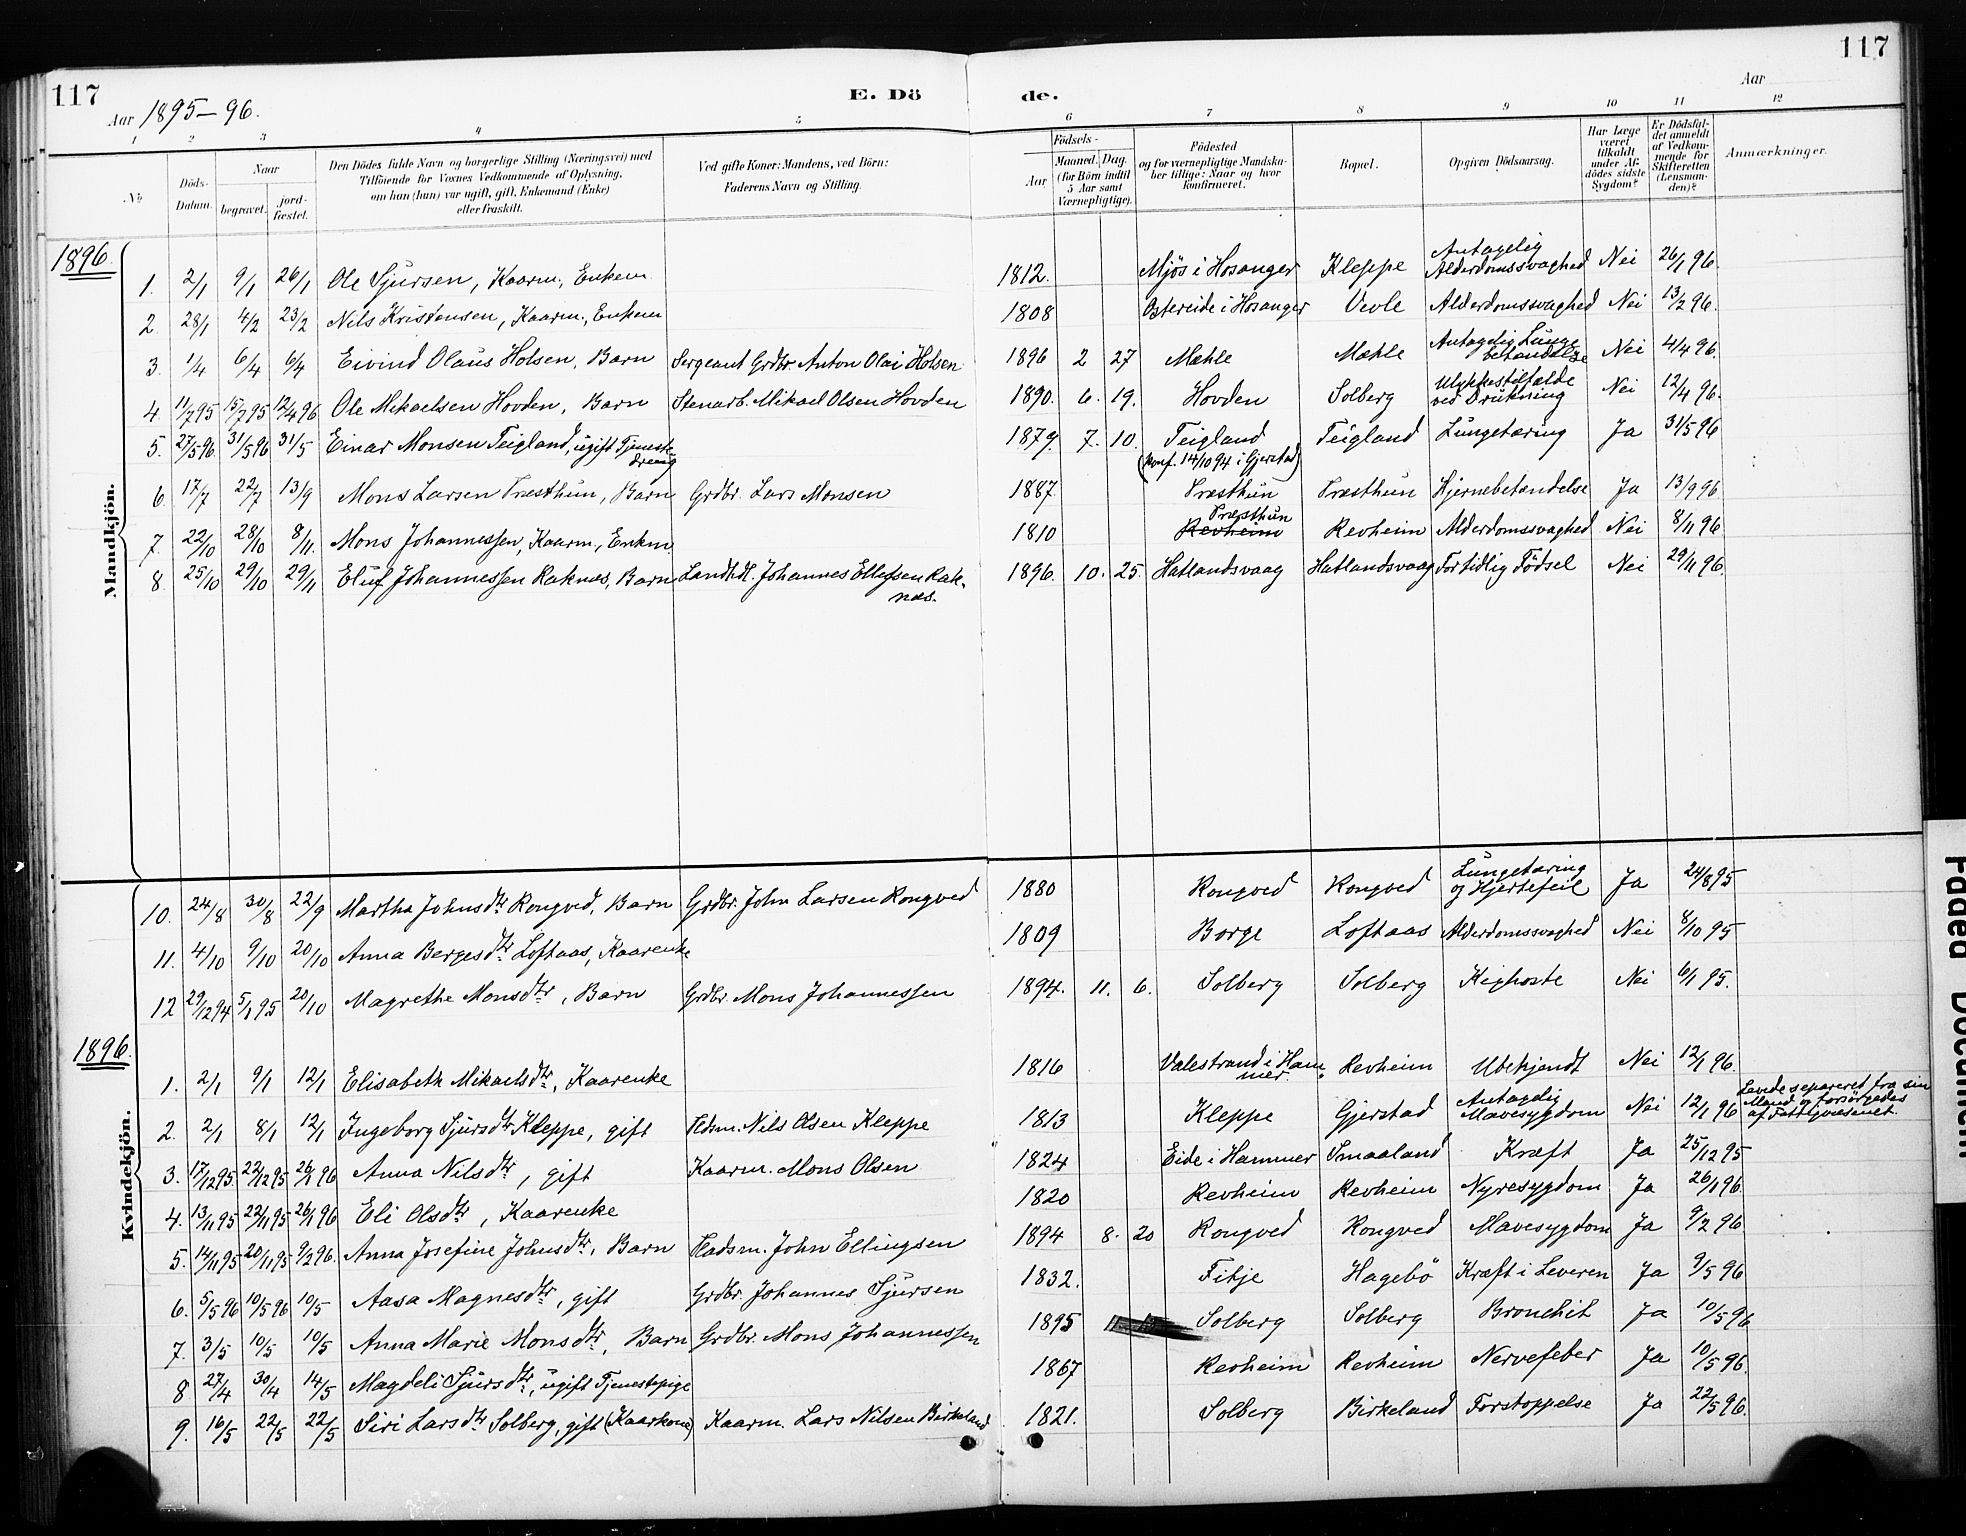 117
117
Aar 1895–96.
E. Dö
de.
Aar
1 2 3 4 5 6 7 8 9 10 11 12
No
Döds-Datum.
Naar
begravet.
jord-fæstet.
Den Dödes fulde Navn og borgerlige Stilling (Næringsvei) med
Tilföiende for Voxnes Vedkommende af Oplysning,
om han (hun) var ugift, gift, Enkemand (Enke)
eller fraskilt.
Ved gifte Koner: Mandens, ved Börn:
Faderens Navn og Stilling.
Födsels-
Aar
Maaned. Dag.
(for Börn indtil
5 Aar samt
Værnepligtige).
Födested
og for værnepligtige Mandska-
ber tillige: Naar og hvor
konfirmeret.
Bopæl.
Opgiven Dödsaarsag.
Har Læge
været
tilkaldt
under Af-
dödes sidste
Sygdom?
Er Dödsfal-
det anmeldt
af Vedkom-
mende for
Skifteretten
(Lensman-
den)?
Anmærkninger.
1896.
Mandkjön.
1. 2/1 9/1 26/1 Ole Sjursen, Kaarm., Enkem. 1812. Mjös i Hosanger Kleppe Antagelig Alderdomssvaghed Nei 26/1 96.
2. 28/1 4/2 23/2 Nils Kristensen, Kaarm., Enkem 1808 Ostereide i Hosanger Vevle Alderdomssvaghed Nei 13/2 96.
3. 1/4 6/4 6/4 Eivind Olaus Holsen, Barn Sergeant Grdbr. Anton Olai Holsen 1896 2 27 Mæhle Mæhle Antagelig Lunge betændelse Nei 4/4 96.
4. 11/7 95 15/7 95 12/4 96 Ole Mikaelsen Hovden, Barn Stenarb. Mikael Olsen Hovden 1890. 6. 19. Hovden Solberg Ulykkestilfælde ved Drukning Nei 12/4 96.
5. 27/5 96. 31/5 96 31/5 Einar Monsen Teigland, ugift Tjeneste-dreng 1879. 7. 10. Teigland (Konf. 14/10 94 i Gjerstad) Teigland Lungetæring Ja 31/5 96
6. 17/7 22/7 13/9 Mons Larsen Træsthun, Barn Grdbr. Lars Monsen 1887. Træsthun Træsthun Hjernebetændelse Ja 13/9 96
7. 22/10 28/10 8/11. Mons Johannessen, Kaarm., Enkm. 1810 Træsthun Revheim Revheim Alderdomssvaghed Nei 8/11 96
8. 25/10 29/10 29/11 Eluf Johannessen Raknes, Barn Landhdl. Johannes Ellefsen Rak-nes. 1896. 10. 25. Hatlandsvaag Hatlandsvaag For tidlig Födsel Nei 29/11 96.
Kvindekjön.
10. 24/8 30/8 22/9 Martha Johnsdtr. Rongved, Barn Grdbr. John Larsen Rongved 1880 Rongved Rongved Lungetæring og Hjertefeil Ja 24/8 95
11. 4/10 9/10 20/10 Anna Bergesdtr. Loftaas, Kaarenke 1809 Borge Loftaas Alderdomssvaghed Nei 8/10 95
12 29/12 94 5/1 95 20/10 Magrethe Monsdtr., Barn Grdbr. Mons Johannessen 1894. 11. 6. Solberg Solberg Kighoste Nei 6/1 95.
1896.
1. 2/1 9/1 12/1 Elisabeth Mikaelsdtr., Kaarenke 1816 Valestrand i Ham mer. Revheim Ubekjendt Nei 12/1 96.
2. 2/1 8/1 12/1 Ingeborg Sjursdtr. Kleppe, gift Hdsm. Nils Olsen Kleppe 1813 Kleppe Gjerstad Antagelig Mavesygdom Nei 12/1 96 Levede separeret fra sin Mand og forsörgedes af Fattigvæsenet.
3. 17/12 95. 22/12 95 26/1 96 Anna Nilsdtr., gift Kaarm. Mons Olsen 1824 Eide i Hammer Smaaland Kræft Ja 25/12 95
4. 13/11 95 22/11 95 26/1 96 Eli Olsdtr., Kaarenke 1820 Revheim Revheim Nyresygdom Ja 26/1 96.
5. 14/11 95 20/11 95 9/2 96. Anna Josefine Johnsdtr., Barn Hdsm. John Ellingsen 1894 8. 20 Rongved Rongved Mavesygdom Ja 9/2 96
6. 5/5 96 10/5 96 10/5 Aasa Magnesdtr., gift Grdbr. Johannes Sjursen 1832. Fitje Hagebö Kræft i Leveren Ja 9/5 96
7. 3/5 10/5 10/5 Anna Marie Monsdtr., Barn Grdbr. Mons Johannessen 1895 Solberg Solberg Bronchit Ja 10/5 96
8 27/4 30/4 14/5 Magdeli Sjursdtr., ugift Tjenestepige 1867 Revheim Revheim Nervefeber Ja 10/5 96.
9. 16/5 22/5 22/5 Siri Larsdtr. Solberg, gift (Kaarkone) Kaarm. Lars Nilsen Birkeland 1821. Solberg Birkeland Forstoppelse Ja 22/5 96.